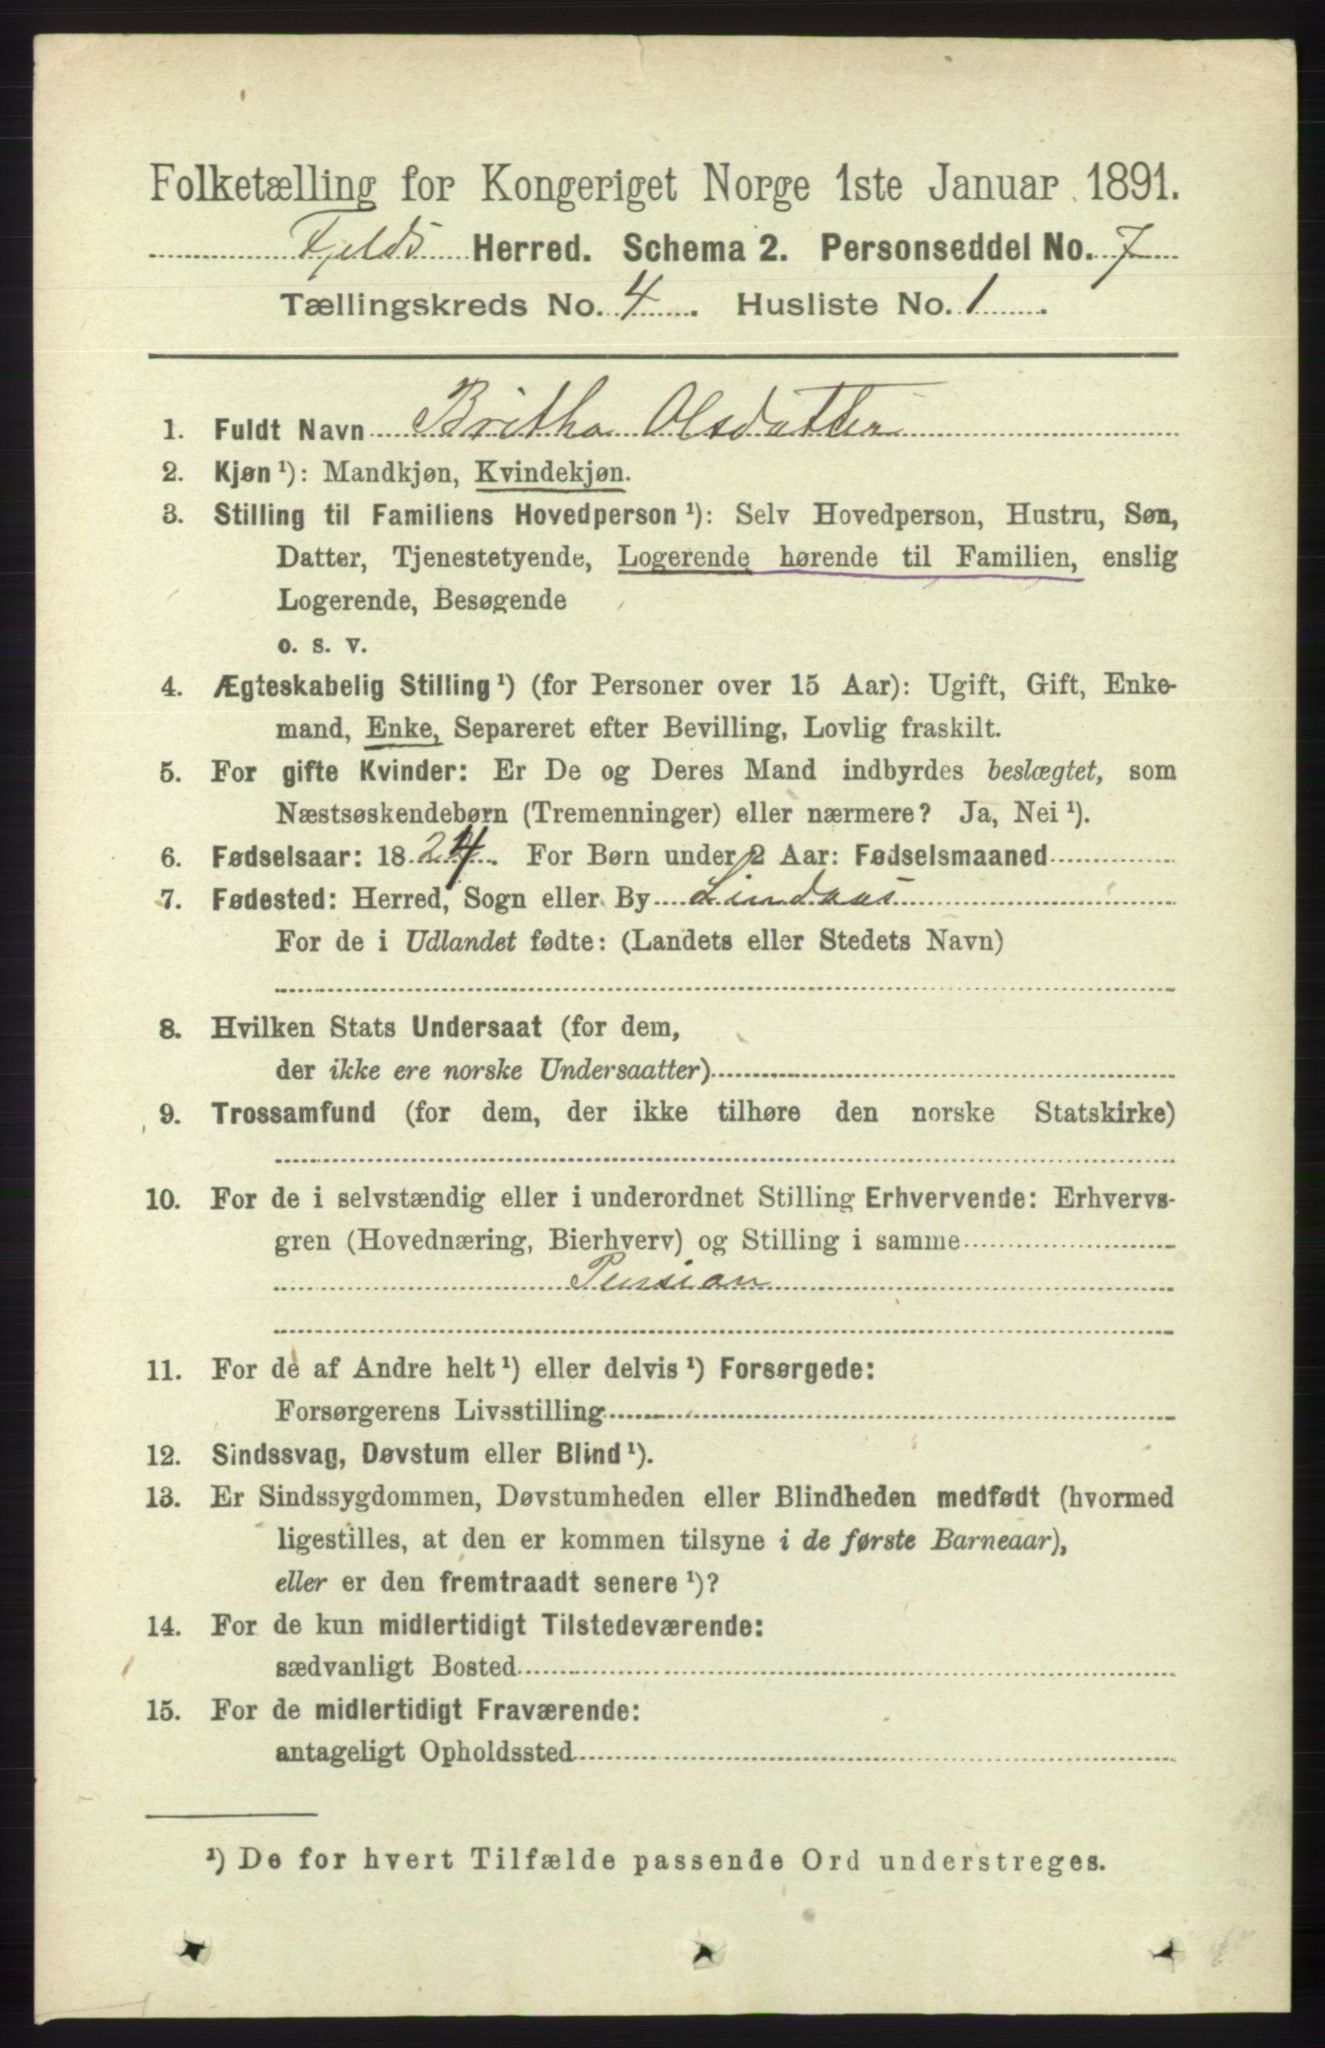 Folketælling for Kongeriget Norge 1ste Januar 1891.
Fjelds Herred. Schema 2. Personseddel No. 7
Tællingskreds No. 4. Husliste No. 1.
1. Fuldt Navn Britha Olsdatter
2. Kjøn ¹): Mandkjøn, Kvindekjøn.
3. Stilling til Familiens Hovedperson ¹): Selv Hovedperson, Hustru, Søn,
Datter, Tjenestetyende, Logerende hørende til Familien, enslig
Logerende, Besøgende
o. s. v.
4. Ægteskabelig Stilling ¹) (for Personer over 15 Aar): Ugift, Gift, Enke-
mand, Enke, Separeret efter Bevilling, Lovlig fraskilt.
5. For gifte Kvinder: Er De og Deres Mand indbyrdes beslægtet, som
Næstsøskendebørn (Tremenninger) eller nærmere? Ja, Nei ¹).
6. Fødselsaar: 1824. For Børn under 2 Aar: Fødselsmaaned
7. Fødested: Herred, Sogn eller By Lindaas
For de i Udlandet fødte: (Landets eller Stedets Navn)
8. Hvilken Stats Undersaat (for dem,
der ikke ere norske Undersaatter)
9. Trossamfund (for dem, der ikke tilhøre den norske Statskirke)
10. For de i selvstændig eller i underordnet Stilling Erhvervende: Erhvervs-
gren (Hovednæring, Bierhverv) og Stilling i samme
Pension
11. For de af Andre helt ¹) eller delvis ¹) Forsørgede:
Forsørgerens Livsstilling
12. Sindssvag, Døvstum eller Blind ¹).
13. Er Sindssygdommen, Døvstumheden eller Blindheden medfødt (hvormed
ligestilles, at den er kommen tilsyne i de første Barneaar),
eller er den fremtraadt senere ¹)?
14. For de kun midlertidigt Tilstedeværende:
sædvanligt Bosted
15. For de midlertidigt Fraværende:
antageligt Opholdssted
¹) De for hvert Tilfælde passende Ord understreges.